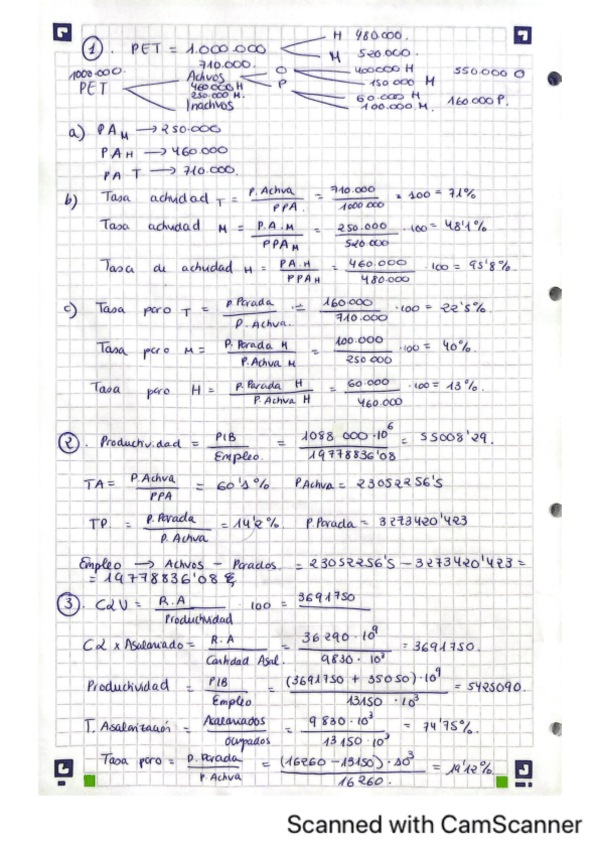 1. PET = 1.000.000 H 480.000. M 520.000.
1000.000. PET 710.000. Activos 460.000 H 250.000 M. Inactivos O P 400000 H 150.000 M 550.000 O 60.000 H 100.000 M. 160000 P.
a) PA M → 250.000
PA H → 460000
PA T → 710.000.
b) Tasa actividad T = P. Activa / PPA. = 710.000 / 1000 000 · 100 = 71%
Tasa actividad M = P.A.M / PPA M = 250.000 / 520.000 · 100 = 48'1%
Tasa de actividad H = PA.H / PPA H = 460.000 / 480.000 · 100 = 95'8%.
c) Tasa paro T = P. Parada / P. Activa. = 160.000 / 710.000 · 100 = 22'5%.
Tasa paro M = P. Parada M / P. Activa M = 100.000 / 250 000 · 100 = 40%.
Tasa paro H = P. Parada H / P. Activa H = 60.000 / 460.000 · 100 = 13%.
2. Productividad = PIB / Empleo. = 1088 000 · 10⁶ / 19778836'08 = 55008'29.
TA = P. Activa / PPA = 60'1% P Activa = 23052256'5
TP. = P. Parada / P. Activa = 14'2%. P Parada = 3273420'423
Empleo → Activos - Parados. = 23052256'5 - 3273420'423 =
= 19778836'08
3. CLU = R.A / Productividad · 100 = 3691750
CL x Asalariado = R.A / Cantidad Asal. = 36290 · 10⁹ / 9830 · 10³ = 3691750.
Productividad = PIB / Empleo = (3691750 + 35050) · 10⁹ / 13150 · 10³ = 5425090.
T. Asalarización = Asalariados / ocupados = 9830 · 10³ / 13150 · 10³ = 74'75%.
Tasa paro = P. Parada / P. Activa = (16260 - 13150) · 10³ / 16260. = 19'12%.
Scanned with CamScanner